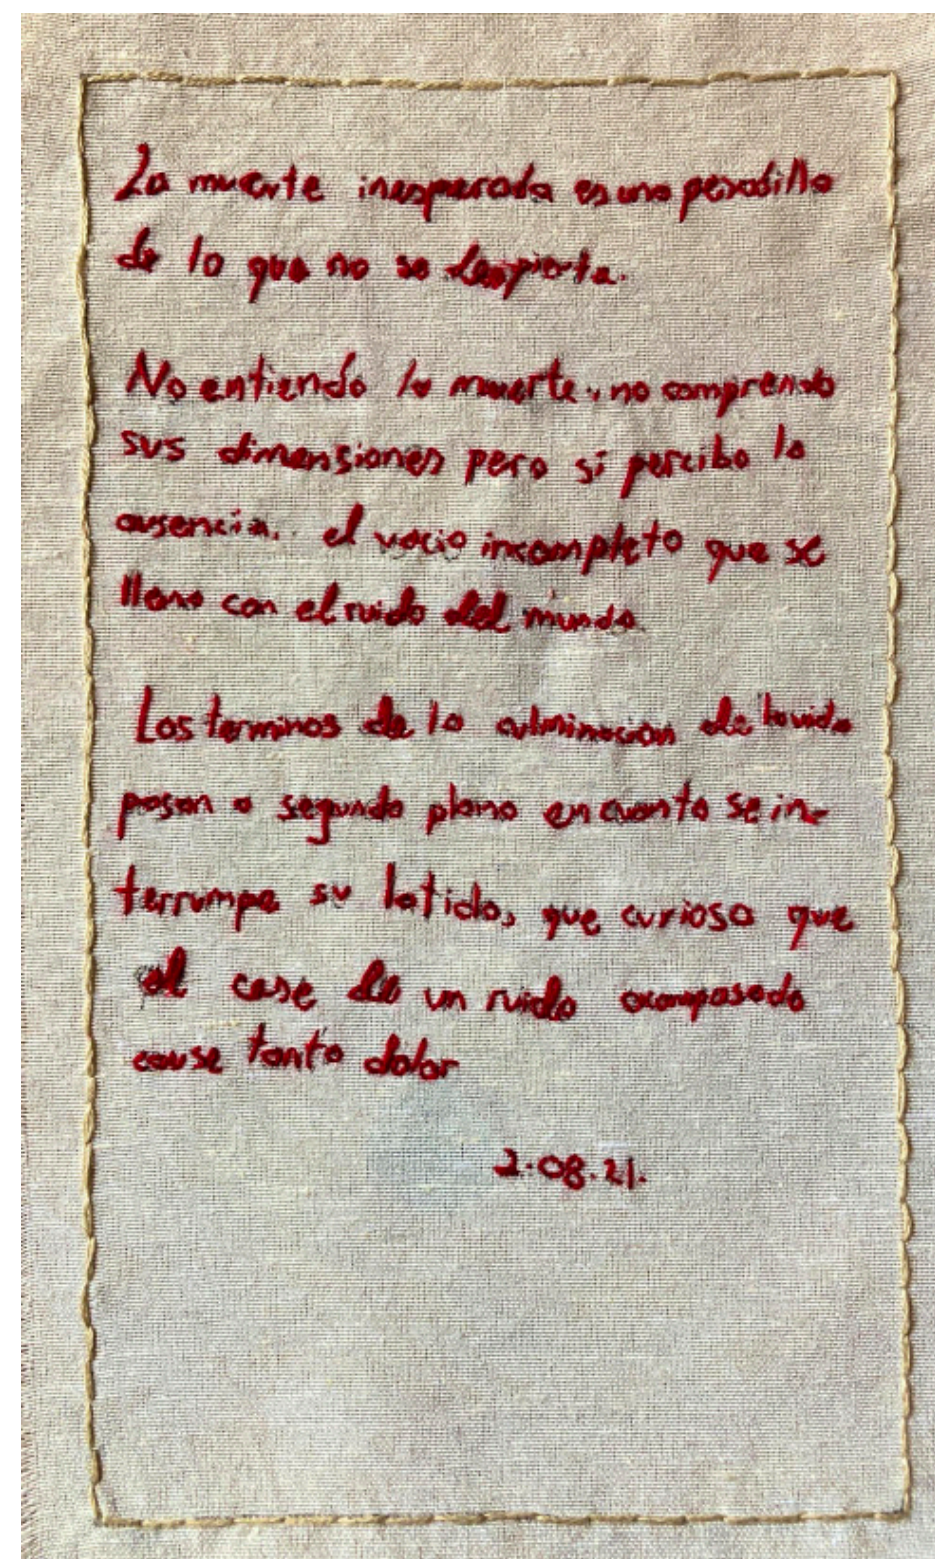 La muerte inesperada es una pesadilla
de la que no se despierta.
No entiendo la muerte, no comprendo
sus dimensiones pero sí percibo la
ausencia, el vacio incompleto que se
llena con el ruido del mundo.
Los terminos de la culminacion de la vida
pasan a segundo plano en cuanto se in-
terrumpe su latido, que curioso que
el cese de un ruido acompasado
cause tanto dolor
2.08.21.